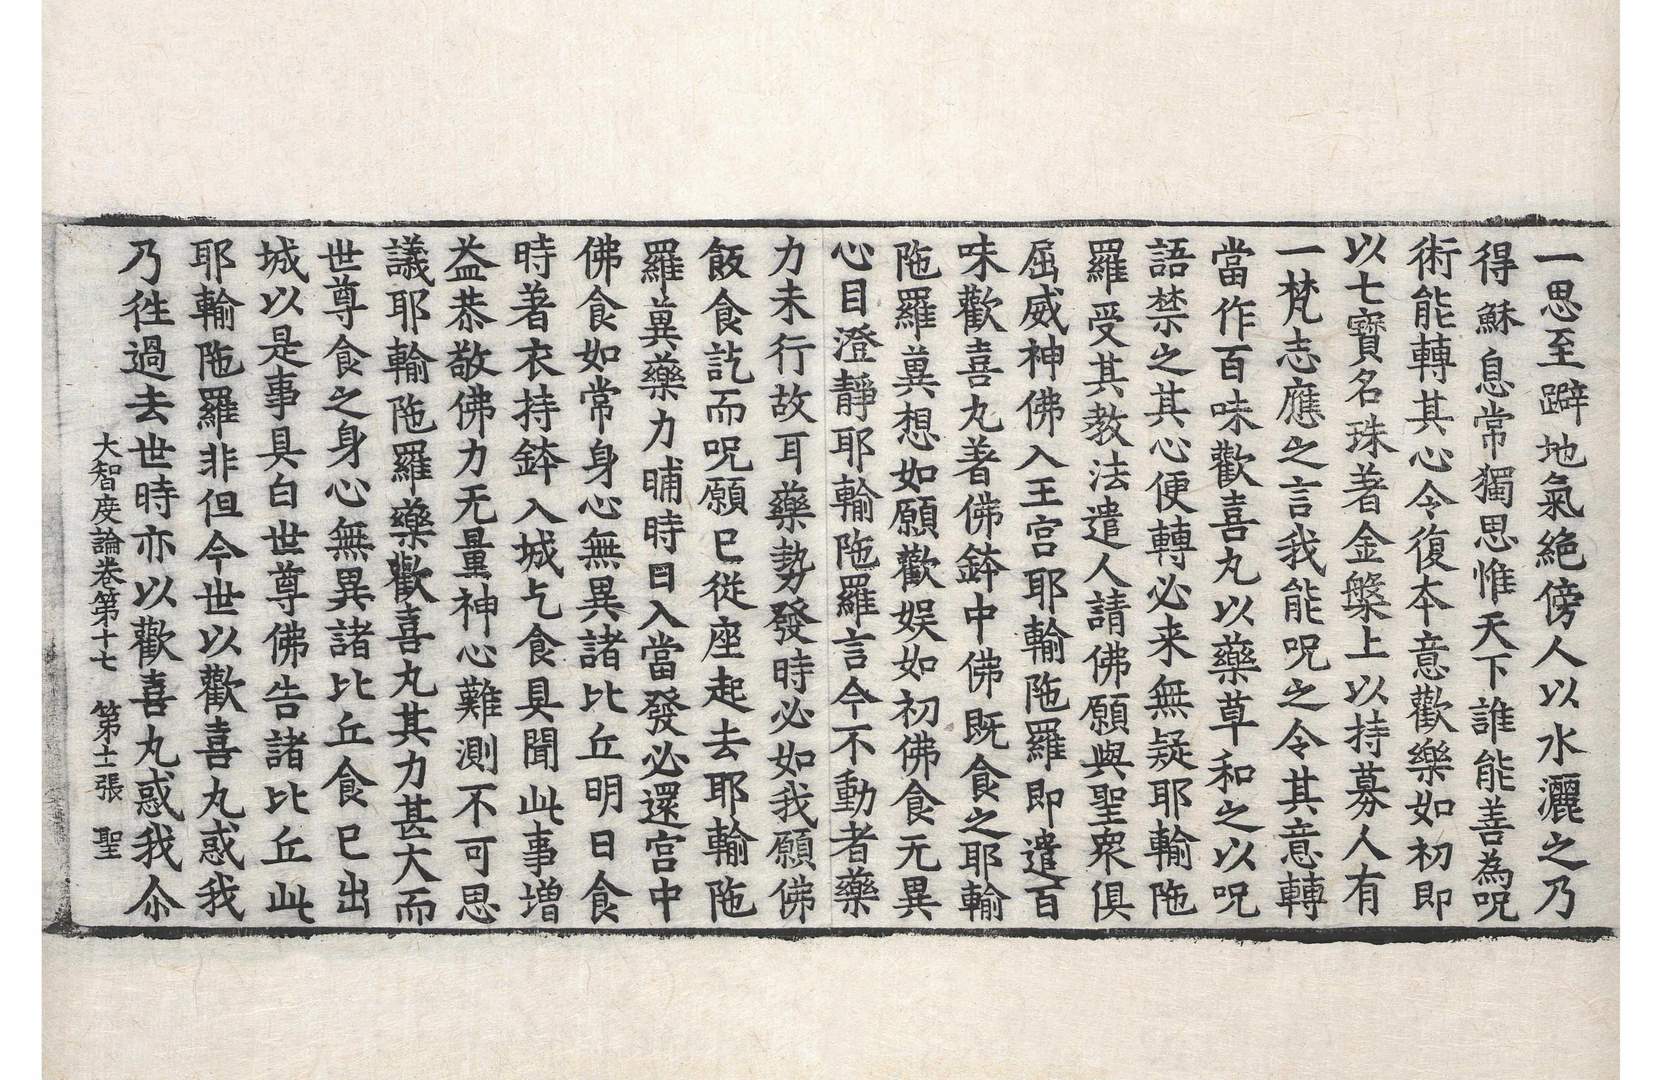 一思至躃地氣絶傍人以水灑之乃
得穌息常獨思惟天下誰能善為呪
術能轉其心令復本意歡樂如初即
以七寶名珠著金槃上以持募人有
一梵志應之言我能呪之令其意轉
當作百味歡喜丸以藥草和之以呪
語禁之其心便轉必来無疑耶輸陁
羅受其教法遣人請佛願與聖衆俱
屈威神佛入王宮耶輸陁羅即遣百
味歡喜丸著佛鉢中佛既食之耶輸
陁羅兾想如願歡娛如初佛食无異
心目澄靜耶輸陁羅言今不動者藥
力未行故耳藥勢發時必如我願佛
飯食訖而呪願已從座起去耶輸陁
羅兾藥力晡時日入當發必還宮中
佛食如常身心無異諸比丘明日食
時著衣持鉢入城乞食具聞此事增
益恭敬佛力无量神心難測不可思
議耶輸陁羅藥歡喜丸其力甚大而
世尊食之身心無異諸比丘食已出
城以是事具白世尊佛告諸比丘此
耶輸陁羅非但今世以歡喜丸惑我
乃徃過去世時亦以歡喜丸惑我尒
大智度論卷第十七 第十二張 聖